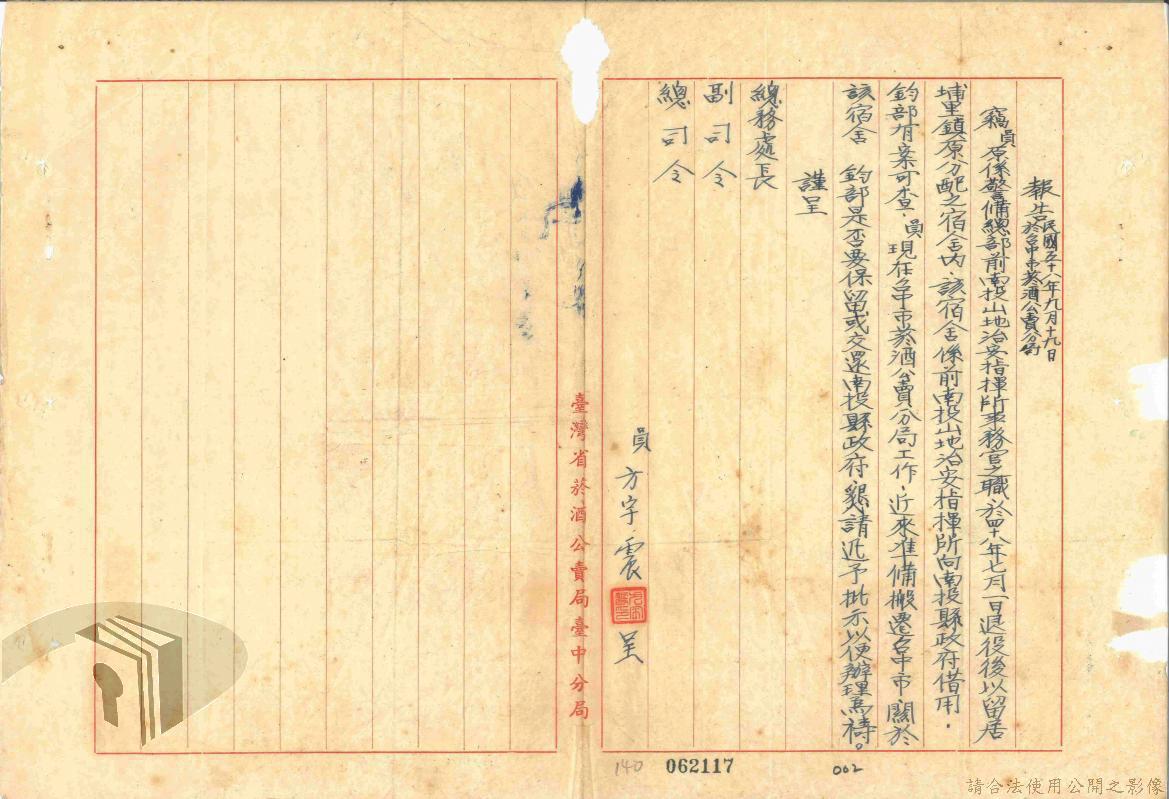 報告 民國五十八年九月十九日
於台中市菸酒公賣分局
竊員原係警備總部前南投山地治安指揮所事務官之職於四十八年七月一日退役後以留居
埔里鎮原分配之宿舍內，該宿舍係前南投山地治安指揮所向南投縣政府借用．
鈞部有案可查．員現在台中市菸酒公賣分局工作，近來準備搬遷台中市，關於
該宿舍　鈞部是否要保留或交還南投縣政府，懇請迅予批示以便辦理為禱。
謹呈
總務處長
副司令
總司令
員 方宇震 呈
臺灣省菸酒公賣局臺中分局
140
062117
002
請合法使用公開之影像